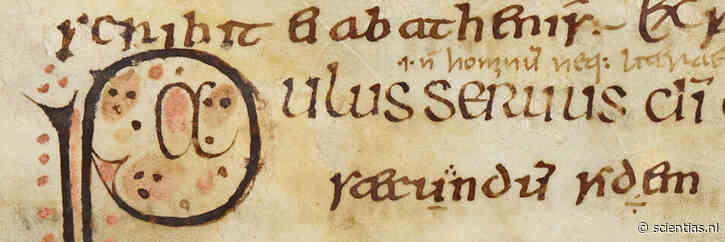 scribit ab athenis.
.i. n̄ hominū neq:
Paulus seruus dī
secundū fidem
© scientias.nl